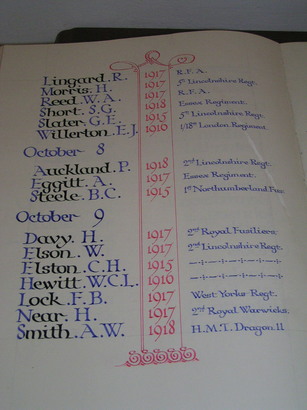 Lingard. R. 1917 R.F.A.
Morris. H. 1917 5th Lincolnshire Regt.
Reed. W.A. 1917 R.F.A.
Short. S.G. 1918 Essex Regiment.
Slater. G.E. 1915 5th Lincolnshire Regt.
Willerton. E.J. 1916 1/18th London Regiment
October 8
Auckland. P. 1918 2nd Lincolnshire Regt.
Eggitt. A. 1917 Essex Regiment.
Steele. B.C. 1915 1st Northumberland Fus.
October 9
Davy. H. 1917 2nd Royal Fusiliers
Elson. W. 1917 2nd Lincolnshire Regt.
Elston. C.H. 1915
Hewitt. W.C.L. 1916
Lock. F.B. 1917 West Yorks Regt.
Near. H. 1917 2nd Royal Warwicks.
Smith. A.W. 1918 H.M.T. Dragon. 11